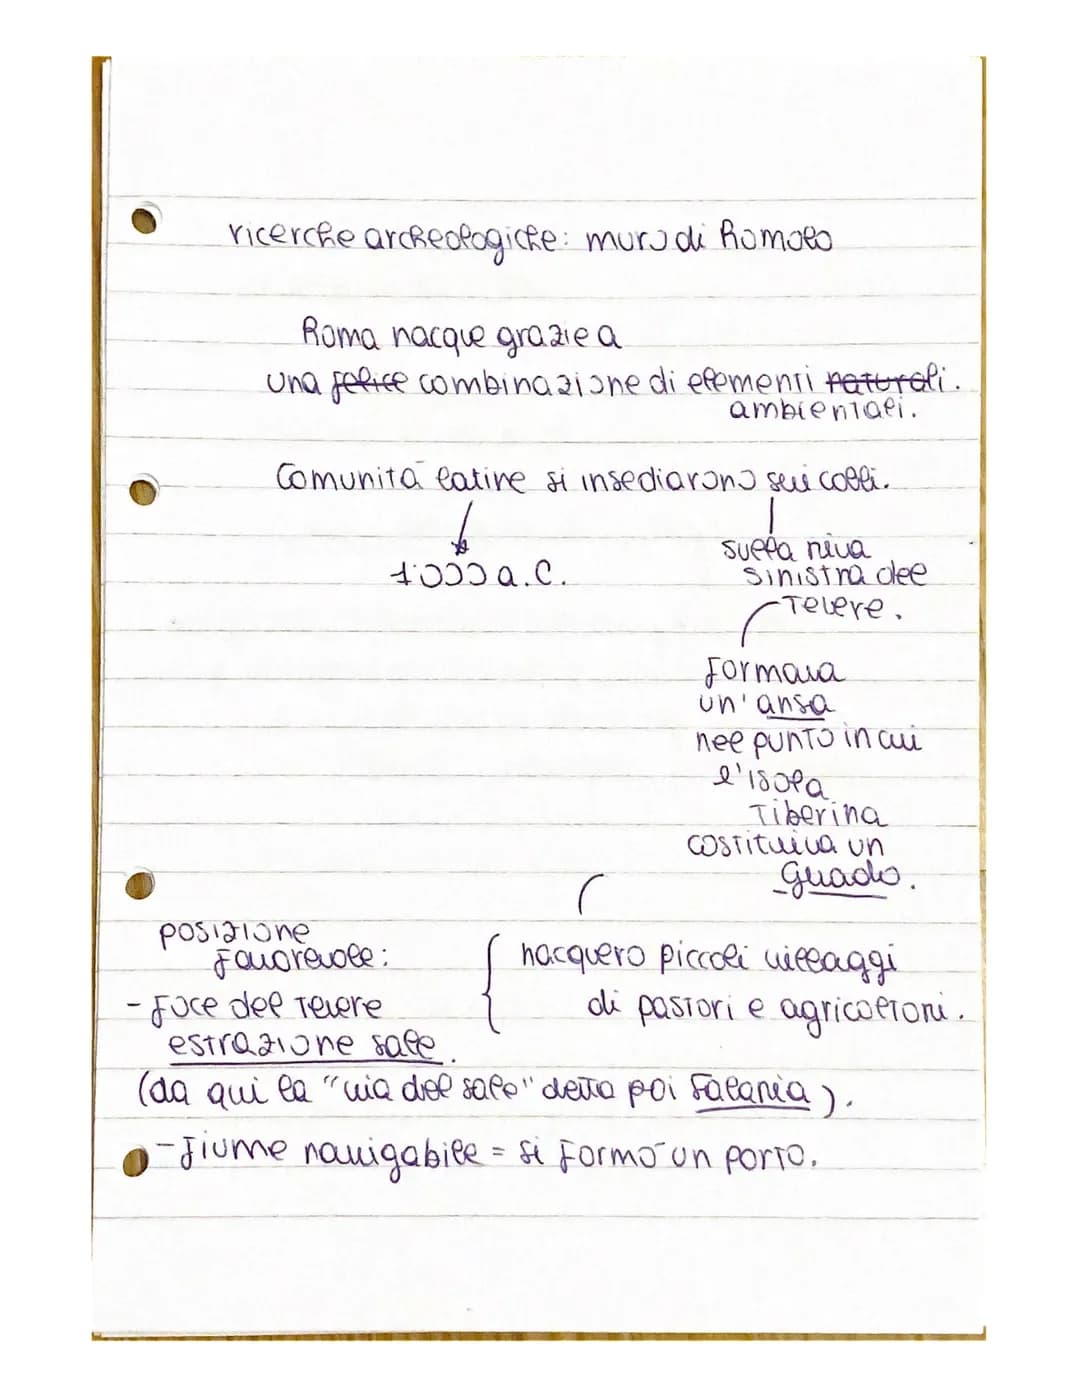 ricerche archeologiche: muro di Romolo
Roma nacque grazie a
una felice combinazione di elementi naturali.
ambientali.
Comunità latine si insediarono sui colli.
1'000 a.C.
sulla riva
sinistra del
Tevere.
formava
un'ansa
nel punto in cui
l'isola
Tiberina
costituiva un
guado.
nacquero piccoli villaggi
di pastori e agricoltori.
posizione
favorevole:
- foce del Tevere
estrazione sale.
(da qui la "via del sale" detta poi Salaria).
- fiume navigabile = si formò un porto.